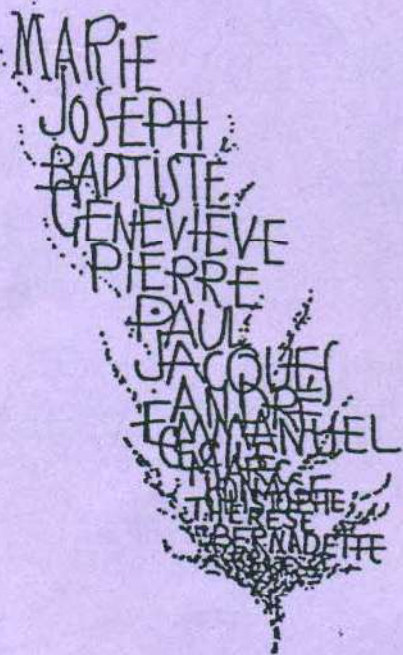 MARIE
JOSEPH
BAPTISTE
GENEVIÈVE
PIERRE
PAUL
JACQUES
ANDRE
EMMANUEL
CECILE
MARC
THERESE
BERNADETTE